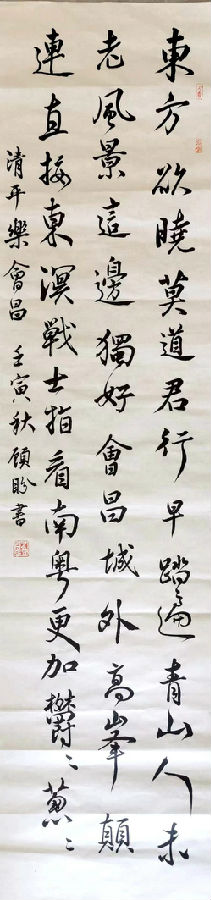 東方欲曉莫道君行早踏遍青山人未
老風景這邊獨好會昌城外高峰顛
連直接東溟戰士指看南粵更加鬱〻蔥〻
清平樂會昌 壬寅秋 顧盼書